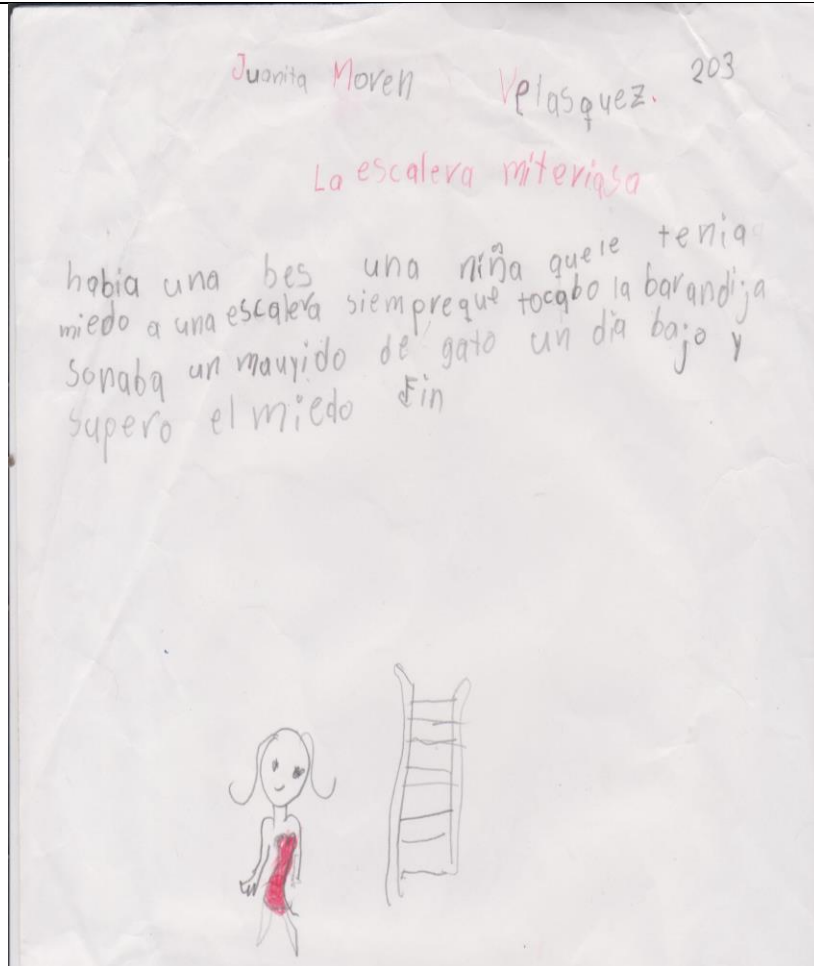 Juanita Moren Velasquez. 203
La escalera miteriosa
habia una bes una niña quele tenia
miedo a una escalera siempreque tocabo la barandija
sonaba un mauyido de gato un dia bajo y
supero el miedo Fin